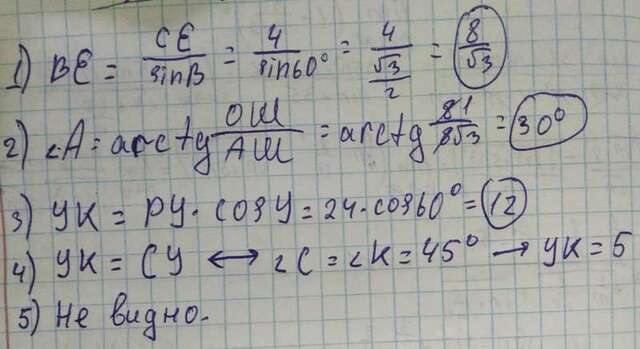 1) BE = CE/sinB = 4/sin60° = 4/(√3/2) = 8/√3
2) ∠A = arctg ОШ/АШ = arctg 81/8√3 = 30°
3) УК = РУ · cosУ = 24 · cos60° = 12
4) УК = СУ ↔ ∠C = ∠K = 45° → УК = 5
5) Не видно.